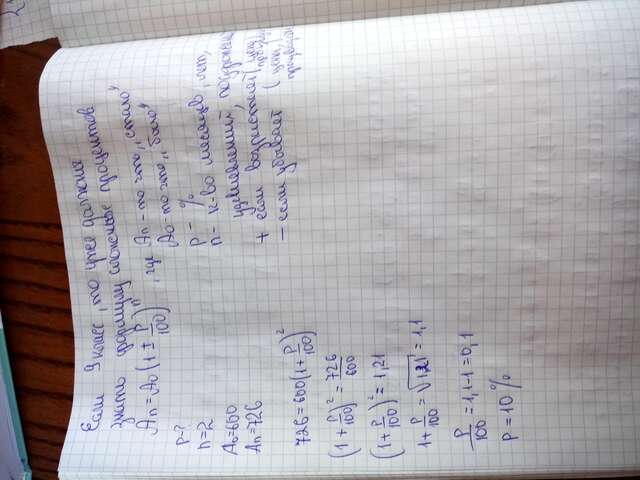 Если 9 класс, то уже должны
знать формулу сложных процентов
Aₙ = A₀(1 ± P/100)ⁿ, где Aₙ - то что „стало"
A₀ - то что „было"
P - %
n - к-во месяцев, лет,
+ если возрастает (цену
- если убывает (цена,
P - ?
n = 2
A₀ = 600
Aₙ = 726
726 = 600(1 + P/100)²
(1 + P/100)² = 726/600
(1 + P/100)² = 1,21
1 + P/100 = √1,21 = 1,1
P/100 = 1,1 - 1 = 0,1
P = 10%